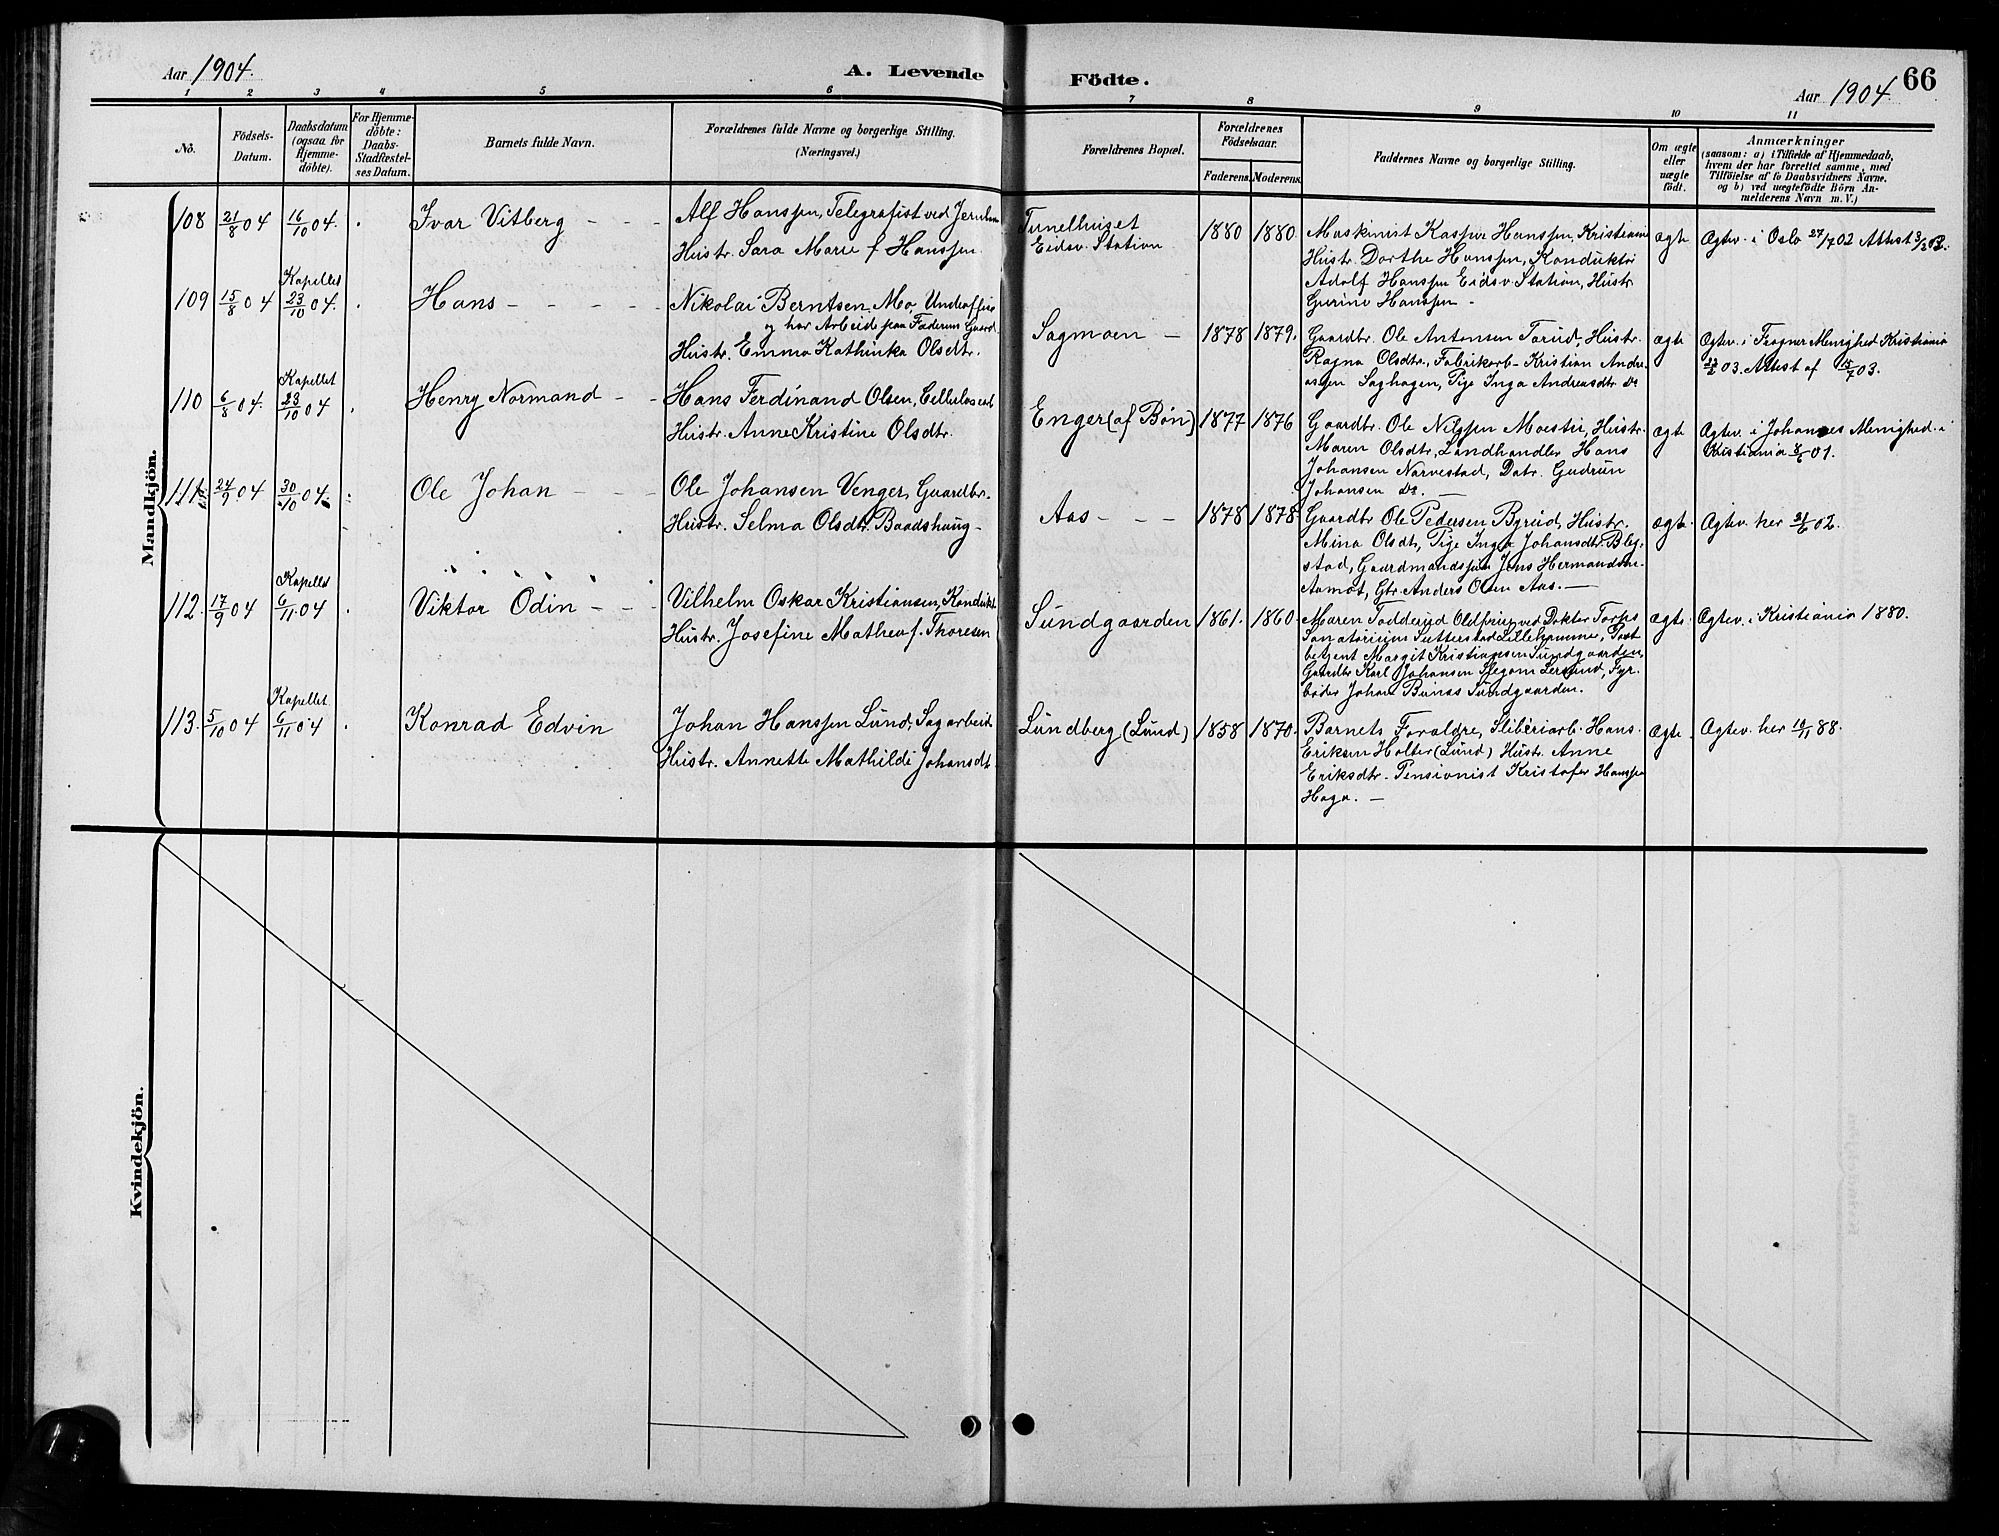 Aar 1904.
A. Levende
1 2 3 4 5 6
No.
Födsels-
Datum.
Daabsdatum
(ogsaa for
Hjemme-
döbte).
For Hjemme-
döbte:
Daabs-
Stadfæstel-
ses Datum.
Barnets fulde Navn.
Forældrenes fulde Navne og borgerlige Stilling.
(Næringsvei.)
Mandkjön.
108 21/8 04 16/10 04. Ivar Vitberg - - -
Alf Hanssen, Telegrafist ved Jernban
Hustr. Sara Marie f Hanssen.
Kapellet
109 15/8 04 23/10 04. Hans - - - -
Nikolai Berntsen Mo, Underoffiser
og har Arbeide paa Faderens Gaard
Hustr. Emma Kathinka Olsdtr.
Kapellet
110 6/8 04. 23/10 04 Henry Normand - -
Hans Ferdinand Olsen, Cellulosearb
Hustr. Anne Kristine Olsdtr.
111. 24/9 04 30/10 04. Ole Johan - - -
Ole Johansen Venger, Gaardbr.
Hustr. Selma Olsdtr. Baadshaug -
Kapellet
112. 17/9 04 6/11 04 Viktor Odin - - -
Vilhelm Oskar Kristiansen, Kondukt.
Hustr. Josefine Mathea f. Thoresen
Kapellet
113. 5/10 04 6/11 04 Konrad Edvin
Johan Hanssen Lund, Sagarbeid.
Hustr. Annette Mathilde Johansdt.
Kvindekjön.
Födte.
Aar 1904.
66
7 8 9 10 11
Forældrenes Bopæl.
Forældrenes
Födselsaar.
Faderens. Moderens.
Faddernes Navne og borgerlige Stilling.
Om ægte
eller
uægte
födt.
Anmærkninger
(saasom: a) i Tilfælde af Hjemmedaab,
hvem der har forrettet samme, med
Tilföielse af to Daabsvidners Navne.
og b) ved uægtefödte Börn An-
melderens Navn m. V.)
Tunelhuset
Eidsv. Station
1880 1880
Maskinist Kasper Hanssen, Kristiania
Hustr. Dorthe Hanssen, Konduktör
Adolf Hanssen Eidsv. Station, Hustr.
Gurine Hanssen -
ægte
Ægtev. i Oslo 27/7 02 Attest
Sagmoen - 1878 1879.
Gaardbr. Ole Antonsen Torud, Hustr.
Ragna Olsdtr, Fabrikarb- Kristian Andre-
assen Saghagen, Pige Inga Andreasdtr Ds
ægte
Ægtev. i Frogner Menighed Kristiania
03. Attest af 15/7 03.
Enger (af Bön) 1877 1876
Gaardbr. Ole Nilssen Mostu, Hustr.
Maren Olsdtr, Landhandler Hans
Johansen Narvestad, Datr. Gudrun
Johansen Ds. -
ægte
Ægtev. i Johannes Menighed i
Kristiania 01.
Aas - - - 1878 1878.
Gaardbr Ole Pedersen Byrud, Hustr.
Mina Olsdtr, Pige Inga Johansdtr. Bleg-
stad, Gaardmandssøn Jens Hermandsen
Aamot, Gtr. Anders Olsen Aas. -
ægte.
Ægtev. her 02.
Sundgaarden 1861. 1860.
Maren Fodderud Oldfrue ved Doktor Torps
Sanatorium Sutterstad Lillehammer, Post
betjent Margit Kristiansen Sundgaarden,
Gaardbr Karl Johansen Lersund, Fyr-
böder Johan Sundgaarden.
ægte.
Ægtev. i Kristiania 1880.
Lundberg (Lund) 1858 1870.
Barnets Forældre, Sliberiarb. Hans
Eriksen Holter (Lund) Hustr. Anne
Eriksdtr. Pensionist Kristofer Hanssen
Haga. -
ægte
Ægtev. her 10/11 88.